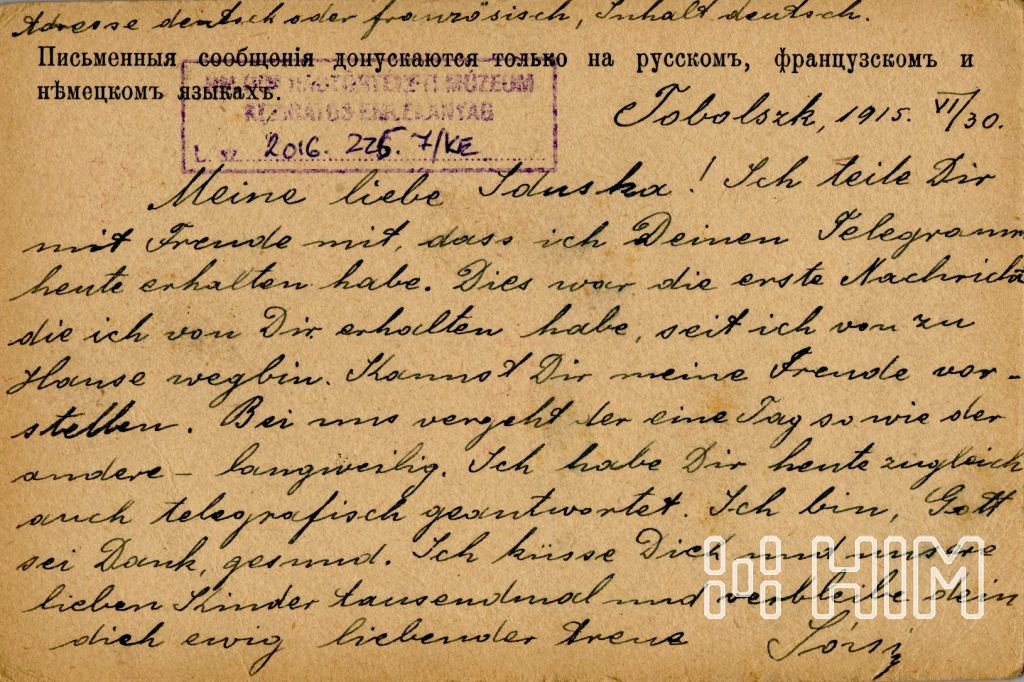 Adresse deutsch oder französisch, Inhalt deutsch.
Письменныя сообщенія допускаются только на русскомъ, французскомъ и
нѣмецкомъ языкахъ.
MÚZEUM
2016. 225. 7/KE
Tobolszk, 1915. VI/30.
Meine liebe Iduska! Ich teile Dir
mit Freude mit, dass ich Deinen Telegramm
heute erhalten habe. Dies war die erste Nachricht
die ich von Dir erhalten habe, seit ich von zu
Hause wegbin. Kannst Dir meine Freude vor-
stellen. Bei uns vergeht der eine Tag so wie der
andere – langweilig. Ich habe Dir heute zugleich
auch telegrafisch geantwortet. Ich bin, Gott
sei Dank, gesund. Ich küsse Dich und unsere
lieben Kinder tausendmal und verbleibe dein
dich ewig liebender treue
HIM